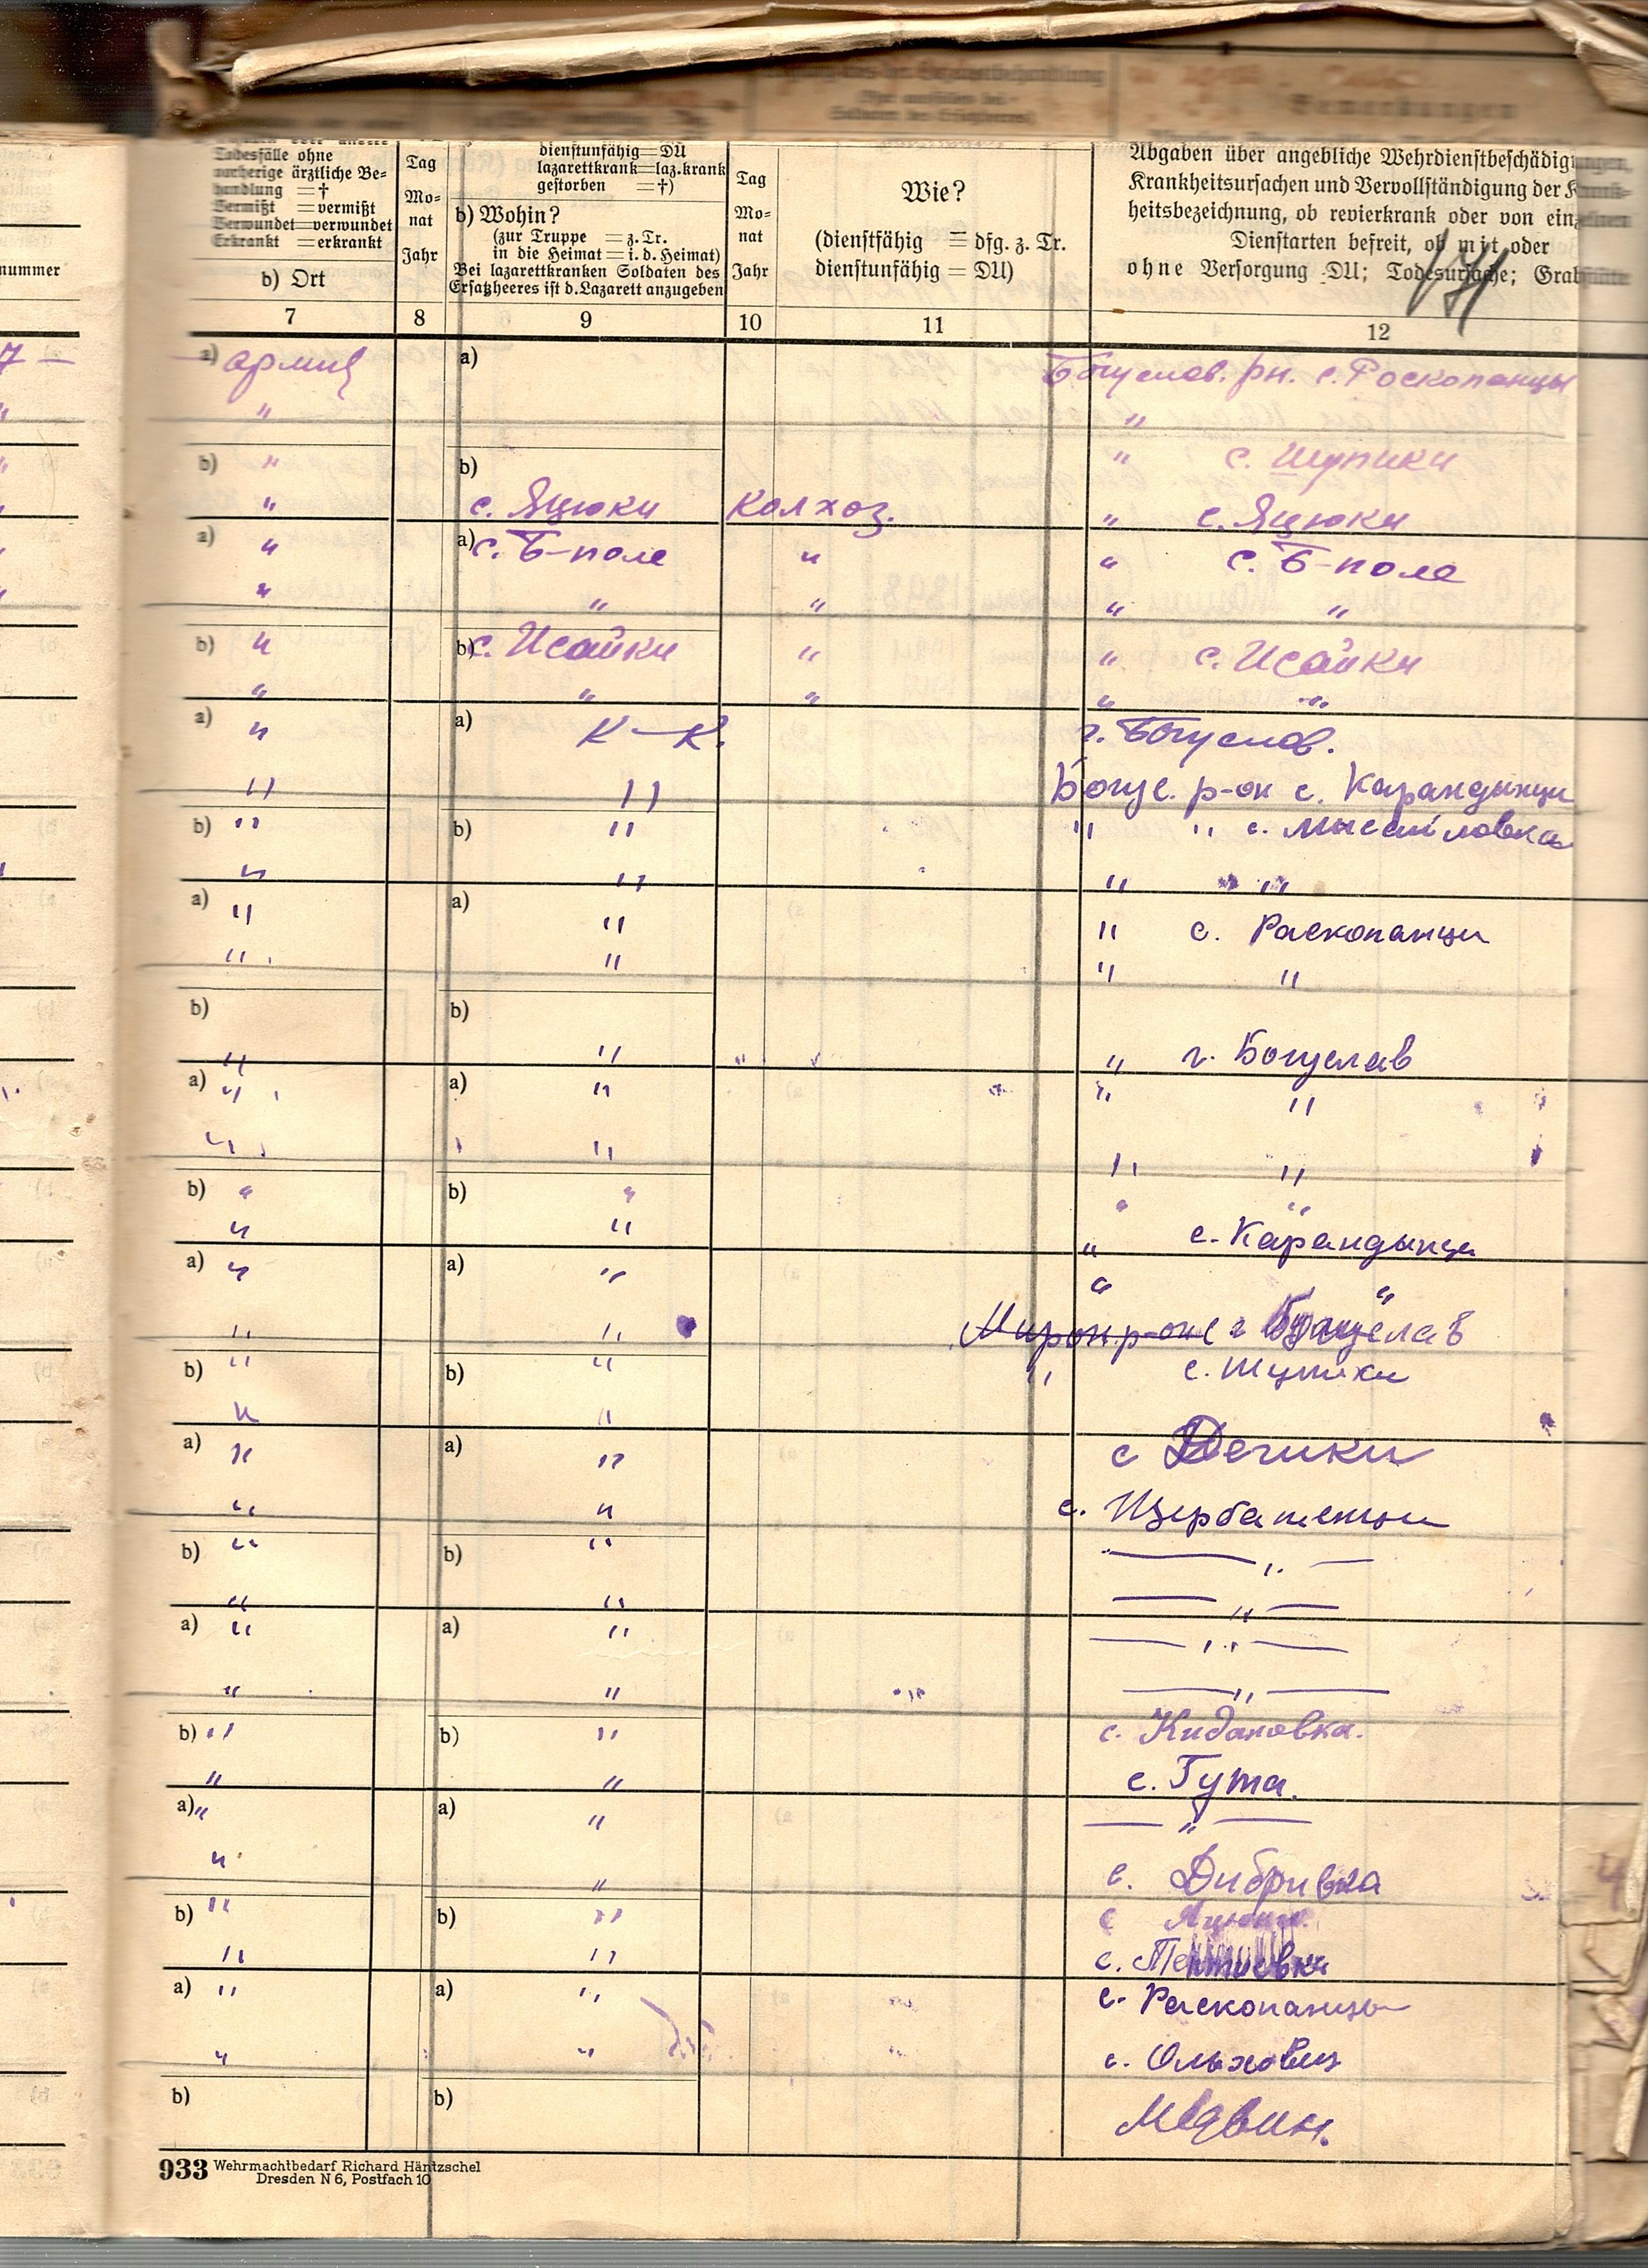 Todesfälle ohne
vorherige ärztliche Be-
handlung =†
Vermißt =vermißt
Verwundet=verwundet
Erkrankt =erkrankt
b) Ort
Tag
Mo-
nat
Jahr
dienstunfähig=DU
lazarettkrank=laz.krank
gestorben =†)
b) Wohin?
(zur Truppe =z.Tr.
in die Heimat=i.d.Heimat)
Bei lazarettkranken Soldaten des
Ersatzheeres ist d.Lazarett anzugeben
Tag
Mo-
nat
Jahr
Wie?
(dienstfähig = dfg. z. Tr.
dienstunfähig = DU)
Abgaben über angebliche Wehrdienstbeschädigungen,
Krankheitsursachen und Vervollständigung der Krank-
heitsbezeichnung, ob revierkrank oder von einzelnen
Dienstarten befreit, ob mit oder
ohne Versorgung DU; Todesursache; Grabstätte
nummer 7 8 9 10 11 12
7 — a) армии a) Богуслов. рн. с. Роскопанцы
" " "
" b) " b) " с. Шупики
" " с. Яцюки Колхоз. " с. Яцюки
" a) " a) с. Б-поле " " с. Б-поле
" " " " " "
b) " b) с. Исайки " " с. Исайки
" " " " "
a) " a) К—К. г. Богуслов.
" " Богус. р-он с. Карандынци
b) " b) " " " с. Мысайловка
" " " "
a) " a) " " с. Раскопанци
" " " "
b) b)
" " " " г. Богуслав
a) " a) " " "
" " " "
b) " b) " " "
" " " с. Карандынци
a) " a) " " "
" " Мирон р-он с г Богуслав
b) " b) " " с. Шупики
" "
a) " a) " с Дечики
" " с. Щербашенци
b) " b) " — " —
" " — " —
a) " a) " — " —
" " — " —
b) " b) " с. Кидановка.
" " с. Гута.
a) " a) " — " —
" " с. Дибривка
b) " b) " с
" " с.
a) " a) " с. Раскопанцы
" " с. Ольховец
b) b) Медвин.
933 Wehrmachtbedarf Richard Häntzschel
Dresden N 6, Postfach 10